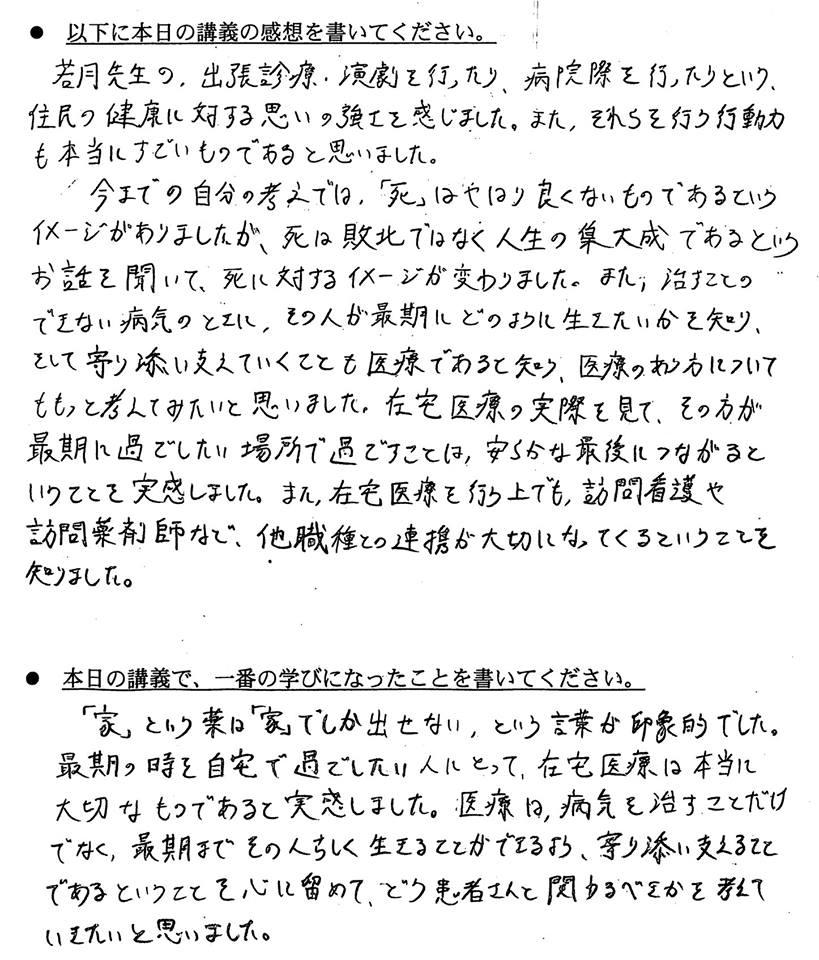 ● 以下に本日の講義の感想を書いてください。
若月先生の、出張診療・演劇を行ったり、病院際を行ったりという、
住民の健康に対する思いの強さを感じました。また、それらを行う行動力
も本当にすごいものであると思いました。
今までの自分の考えでは、「死」はやはり良くないものであるという
イメージがありましたが、死は敗北ではなく人生の集大成であるという
お話を聞いて、死に対するイメージが変わりました。また、治すことの
できない病気のときに、その人が最期にどのように生きたいかを知り、
そして寄り添い支えていくことも医療であると知り、医療のあり方について
ももっと考えてみたいと思いました。在宅医療の実際を見て、その方が
最期に過ごしたい場所で過ごすことは、安らかな最後につながると
いうことを実感しました。また、在宅医療を行う上でも、訪問看護や
訪問薬剤師など、他職種との連携が大切になってくるということを
知りました。
● 本日の講義で、一番の学びになったことを書いてください。
「家」という薬は「家」でしか出せない、という言葉が印象的でした。
最期の時を自宅で過ごしたい人にとって、在宅医療は本当に
大切なものであると実感しました。医療は、病気を治すことだけ
でなく、最期までその人らしく生きることができるよう、寄り添い支えること
であるということを心に留めて、どう患者さんと関わるべきかを考えて
いきたいと思いました。